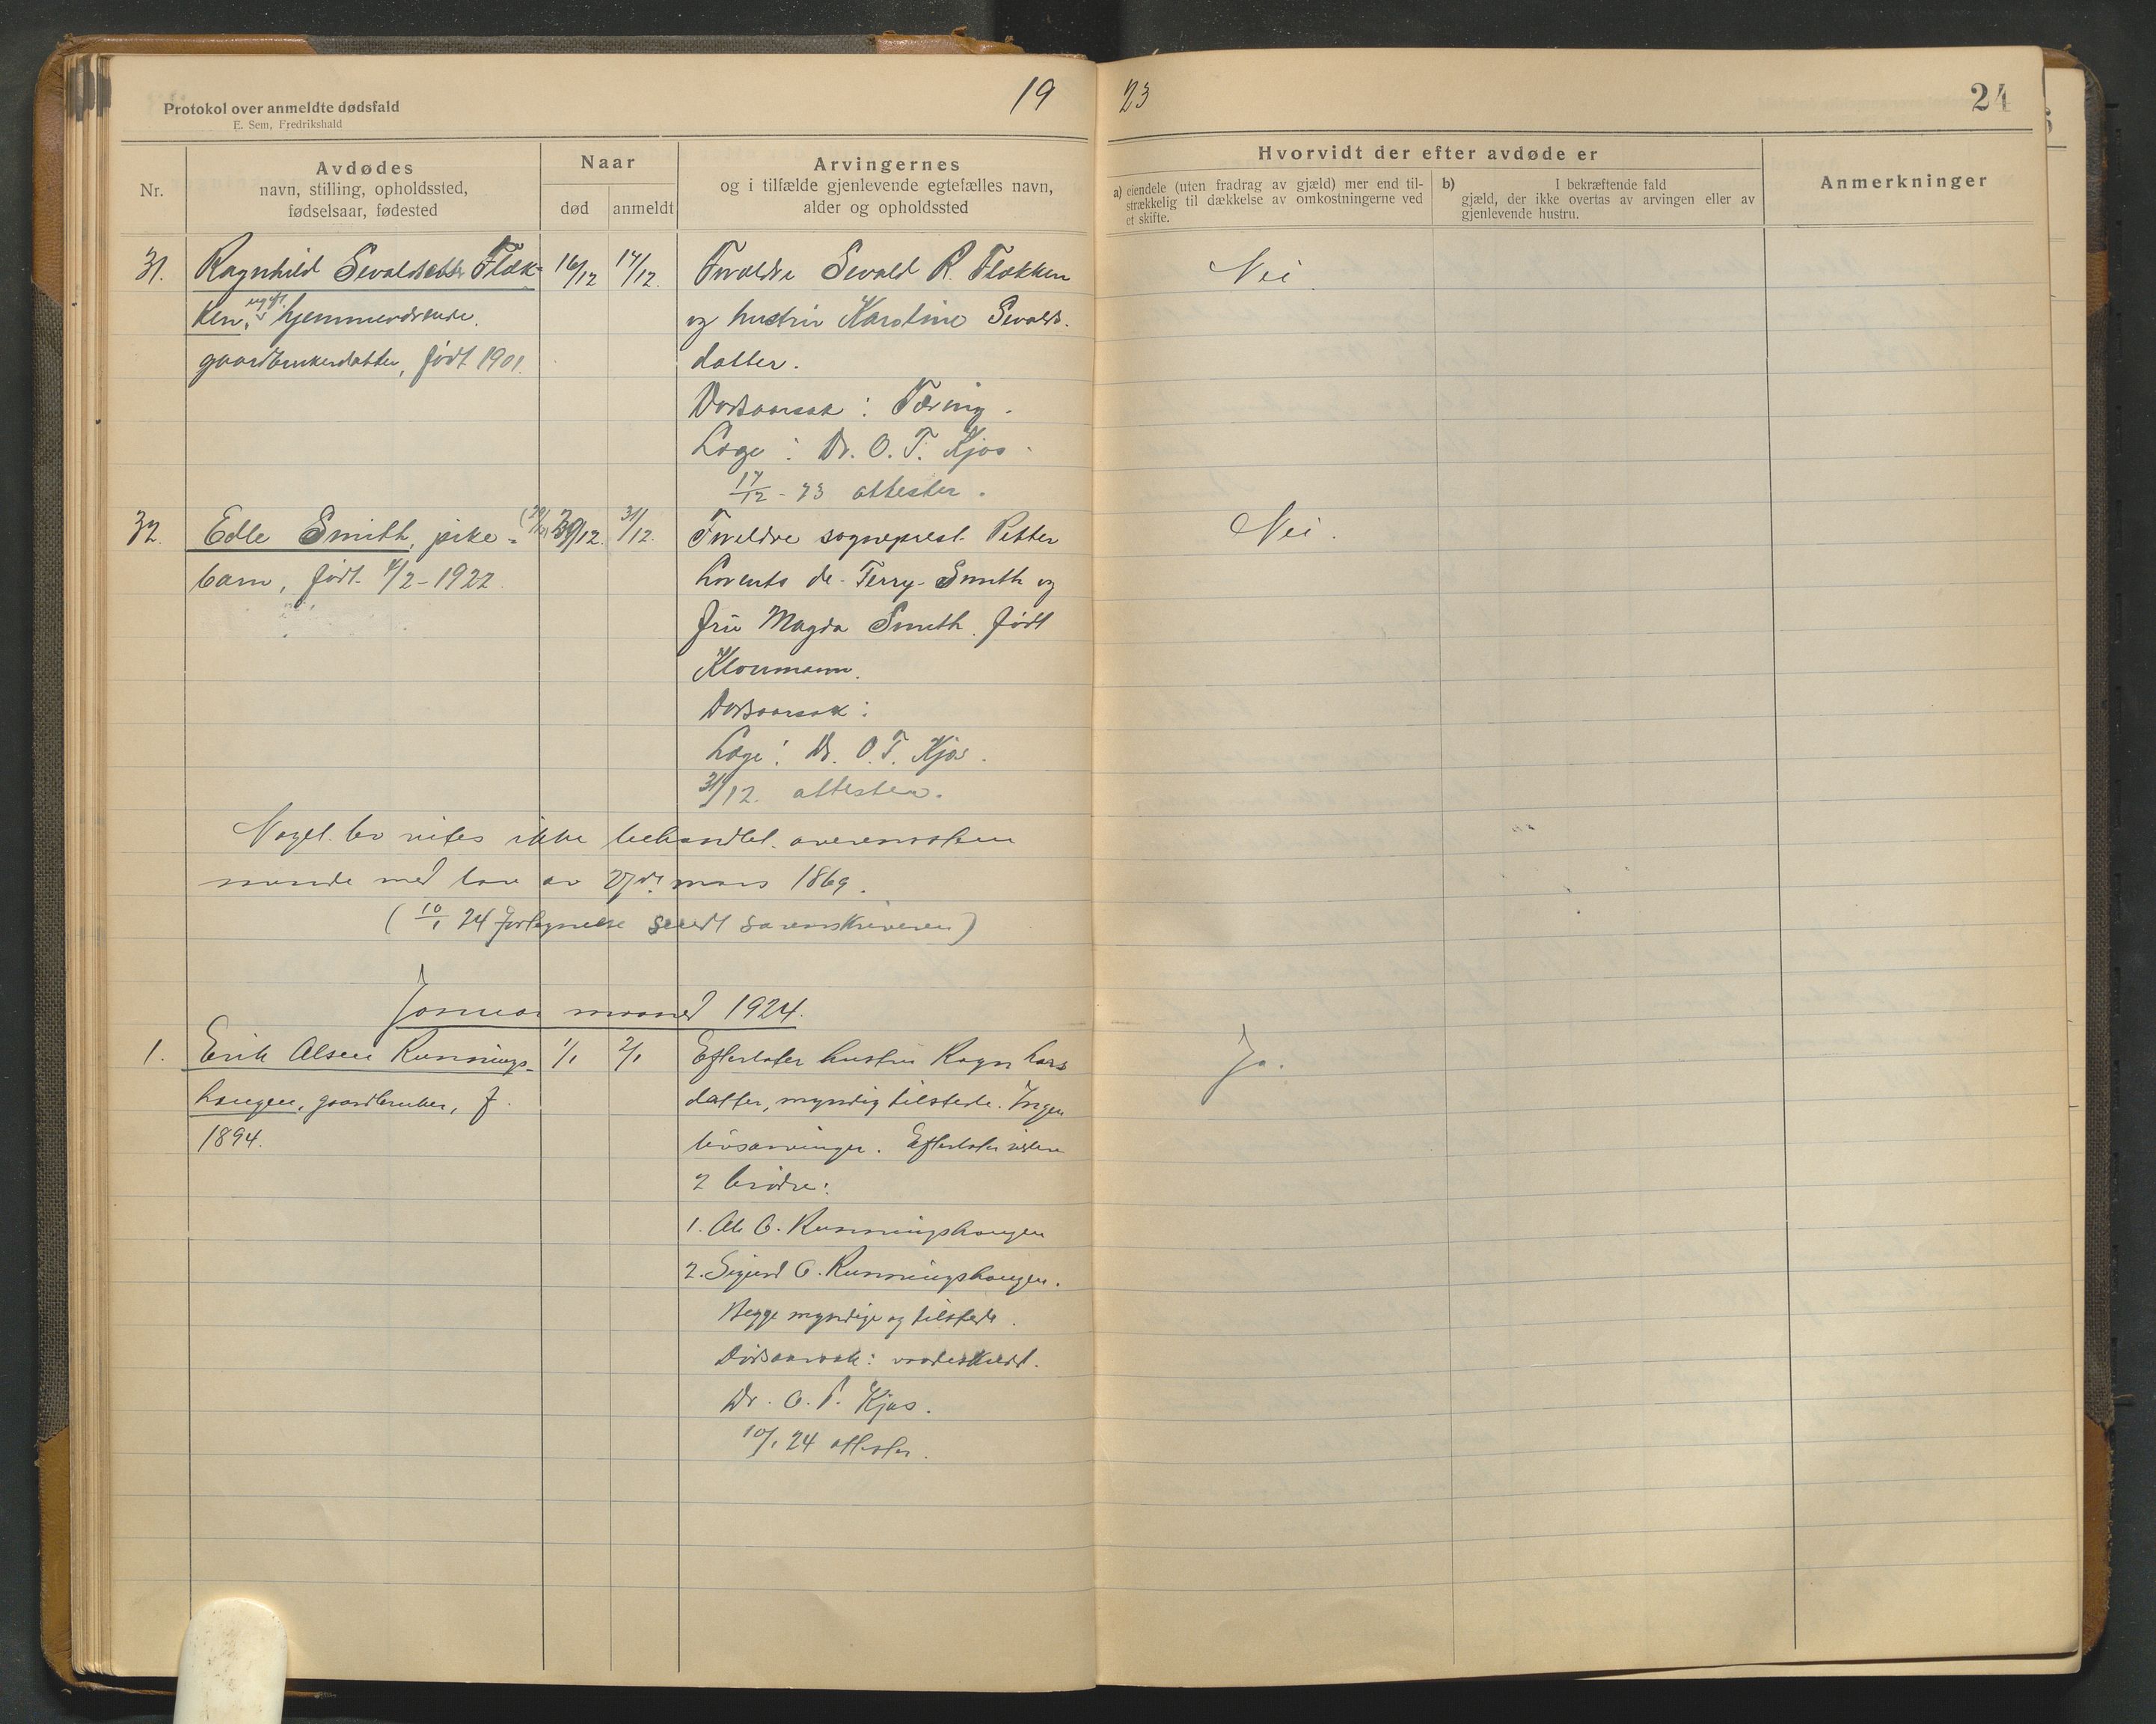 Protokol over anmeldte dødsfald
E. Sem, Fredrikshald
19
23
24
Nr.
Avdødes
navn, stilling, opholdssted,
fødselsaar, fødested
Naar
død
anmeldt
Arvingernes
og i tilfælde gjenlevende egtefælles navn,
alder og opholdssted
Hvorvidt der efter avdøde er
a) eiendele (uten fradrag av gjæld) mer end til-
strækkelig til dækkelse av omkostningerne ved
et skifte.
b) I bekræftende fald
gjæld, der ikke overtas av arvingen eller av
gjenlevende hustru.
Anmerkninger
31. Ragnhild Sevaldsdatter Flæk- 16/12 17/12. Forældre Sevald R. Flækken Nei.
ken, ugift hjemmeværende. og hustru Karoline Sevalds-
gaardbrukerdatter, født 1901. datter.
Dødsaarsak: Tæring.
Læge: Dr. O. T. Kjos.
17/12 - 23 attester.
32. Edle Smith, pike- 30/12. 31/12. Foreldre sogneprest Petter Nei.
barn, født 4/2 - 1922. Lorents de Ferry Smith og
fru Magda Smith født
Kloumann.
Dødsaarsak:
Læge: Dr. O. T. Kjos.
31/12. attester.
Noget bo vites ikke behandlet overensstem
mende med lov av 27de mars 1869.
(10/1 24 Fortegnelse sendt sorenskriveren)
Januar maaned 1924.
1. Erik Olsen Kunnings- 1/1 2/1 Efterlater hustru Ragn. Lars Ja.
haugen, gaardbruker, f. datter, myndig tilstede. Ingen
1894. livsarvinger. Efterlater videre
2 brødre:
1. Ole O. Kunningshaugen
2. Sigurd O. Kunningshaugen.
Begge myndige og tilstede.
Dødsaarsak: vaadeskudd.
Dr. O. T. Kjos.
10/1 24 attester.